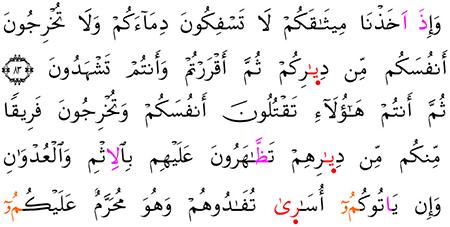 وَإِذَ اَخَذْنَا مِيثَٰقَكُمْ لَا تَسْفِكُونَ دِمَآءَكُمْ وَلَا تُخْرِجُونَ
أَنفُسَكُم مِّن دِيٰ۪رِكُمْ ثُمَّ أَقْرَرْتُمْ وَأَنتُمْ تَشْهَدُونَ ٨٣
ثُمَّ أَنتُمْ هَٰٓؤُلَآءِ تَقْتُلُونَ أَنفُسَكُمْ وَتُخْرِجُونَ فَرِيقًا
مِّنكُم مِّن دِيٰ۪رِهِمْ تَظَّٰهَرُونَ عَلَيْهِم بِالِاثْمِ وَالْعُدْوَٰنِ
وَإِن يَاتُوكُمُۥٓ أُسَٰر۪يٰ تُفَٰدُوهُمْ وَهُوَ مُحَرَّمٌ عَلَيْكُمُۥٓ